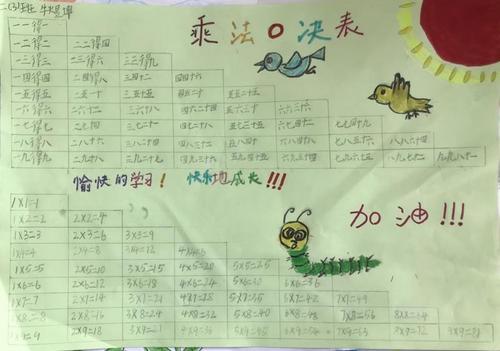 乘法口决表
一一得一
一二得二 二二得四
一三得三 二三得六 三三得九
一四得四 二四得八 三四十二 四四十六
一五得五 二五一十 三五十五 四五二十 五五二十五
一六得六 二六十二 三六十八 四六二十四 五六三十 六六三十六
一七得七 二七十四 三七二十一 四七二十八 五七三十五 六七四十二 七七四十九
一八得八 二八十六 三八二十四 四八三十二 五八四十 六八四十八 七八五十六 八八六十四
一九得九 二九十八 三九二十七 四九三十六 五九四十五 六九五十四 七九六十三 八九七十二 九九八十一
愉快的学习! 快乐地成长!!!
加油!!!
1×1=1
1×2=2 2×2=4
1×3=3 2×3=6 3×3=9
1×4=4 2×4=8 3×4=12
1×5=5 2×5=10 3×5=15 4×5=20 5×5=25
1×6=6 2×6=12 3×6=18 4×6=24 5×6=30 6×6=36
1×7=7 2×7=14 3×7=21 4×7=28 5×7=35 6×7=42 7×7=49
1×8=8 2×8=16 3×8=24 4×8=32 5×8=40 6×8=48 7×8=56 8×8=64
2×9=18 4×9=36 5×9=45 6×9=54 7×9=63 8×9=72